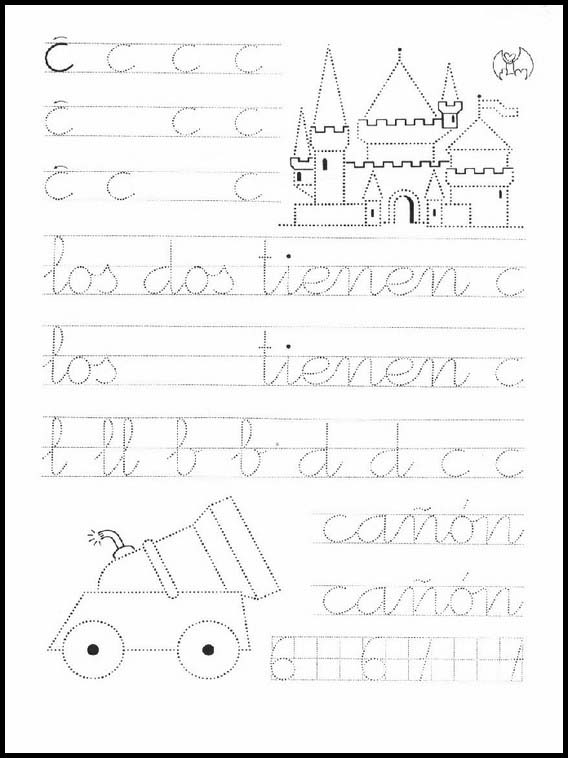 c c c c
c c c
c c c
los dos tienen c
los tienen c
l ll b b d d c c
cañón
cañón
6 6 1 1